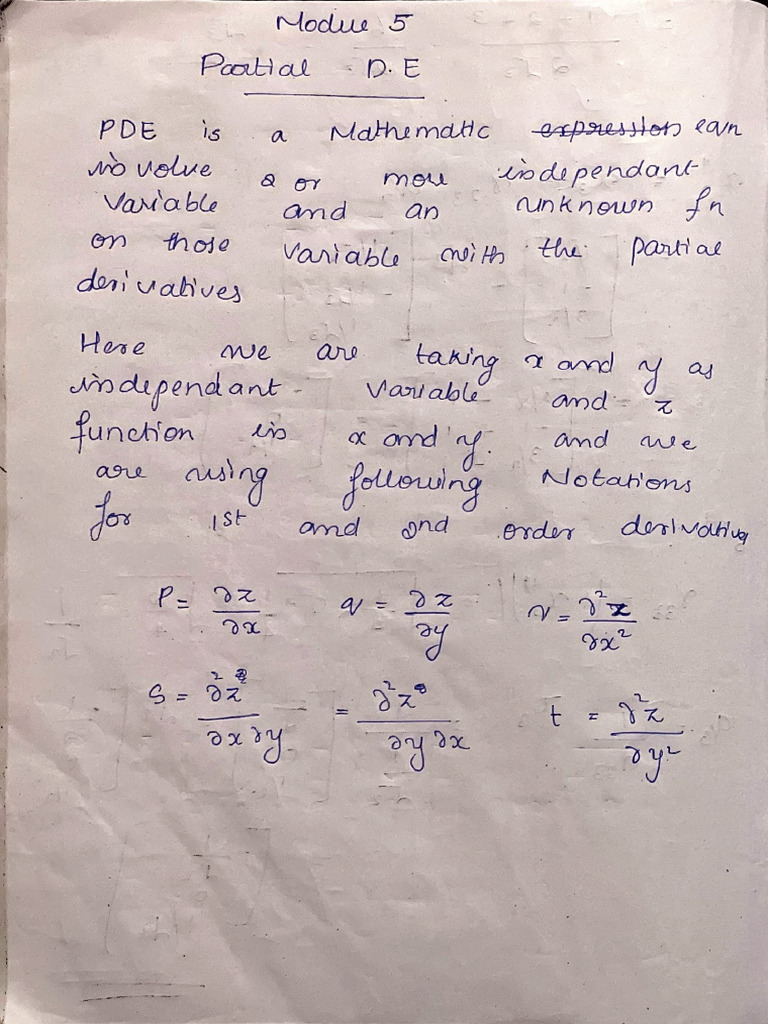 Module 5
Partial D.E
PDE is a Mathematic expression eqn
involve 2 or more independant
variable and an unknown fn
on those variable with the partial
derivatives
Here we are taking x and y as
independant variable and z
function in x and y. and we
are using following Notations
for 1st and 2nd order derivative
P = ∂z/∂x q = ∂z/∂y r = ∂²z/∂x²
S = ∂²z/∂x∂y = ∂²z/∂y∂x t = ∂²z/∂y²